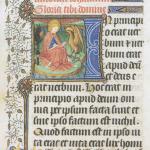 Gloria tibi domine
N principio
erat uer
bum erat
apud
deus e
rat uerbum hoc erat in
principio apud deum om
nia per ipsum facta sunt
et sine ipso factum est nichil
Quod factum est in ipso ui
ta erat et uita erat lux